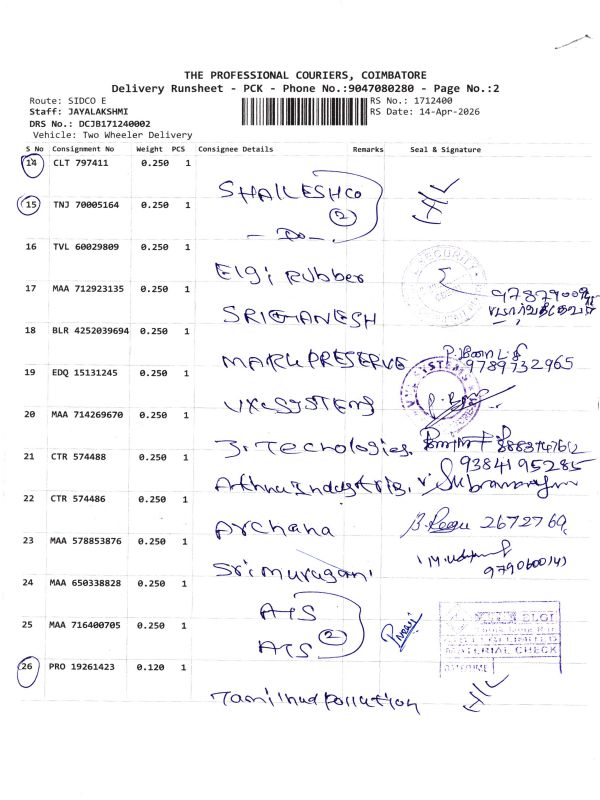 THE PROFESSIONAL COURIERS, COIMBATORE
Delivery Runsheet - PCK - Phone No.:9047080280 - Page No.:2
Route: SIDCO E RS No.: 1712400
Staff: JAYALAKSHMI RS Date: 14-Apr-2026
DRS No.: DCJB171240002
Vehicle: Two Wheeler Delivery
S No Consignment No Weight PCS Consignee Details Remarks Seal & Signature
14 CLT 797411 0.250 1
SHAILESH CO
15 TNJ 70005164 0.250 1
2
- Do -
16 TVL 60029809 0.250 1
SECURITY
Elgi Rubber
17 MAA 712923135 0.250 1
SRIGANESH
18 BLR 4252039694 0.250 1
MARK PRESERVE 9789732965
19 EDQ 15131245 0.250 1
SYSTEMS
VXL SYSTEMS
20 MAA 714269670 0.250 1
3. Tecnologies
21 CTR 574488 0.250 1
9384195285
Industris. V. Subramaniam
22 CTR 574486 0.250 1
Archana 2672769
23 MAA 578853876 0.250 1
Sri murugani
24 MAA 650338828 0.250 1
AIS
25 MAA 716400705 0.250 1
2
AIS
MATERIAL CHECK
26 PRO 19261423 0.120 1
Tamilnad pollution